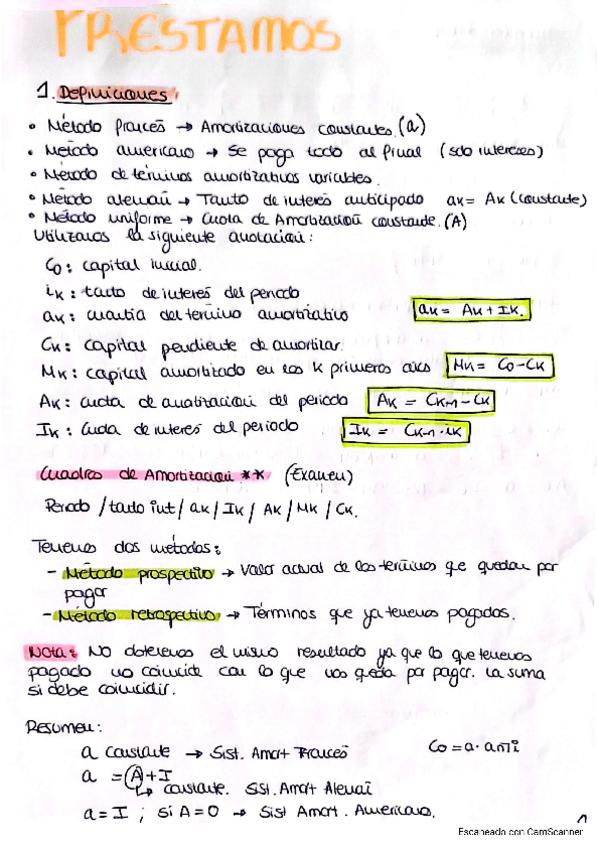 PRESTAMOS
1. Definiciones:
• Método francés → Amortizaciones constantes. (a)
• Método americano → Se paga todo al final (sólo intereses)
• Método de términos amortizativos variables.
• Método alemán → Tanto de interés anticipado ak = Ak (constante)
• Método uniforme → Cuota de Amortización constante. (A)
Utilizamos la siguiente anotación:
C0: capital inicial.
ik: tanto de interés del periodo
ak: cuantía del término amortizativo ak = Ak + Ik.
Ck: capital pendiente de amortizar.
Mk: capital amortizado en los k primeros años Mk = C0 - Ck
Ak: cuota de amortización del periodo Ak = Ck-1 - Ck
Ik: cuota de interés del periodo Ik = Ck-1 · ik
Cuadro de Amortización ** (Examen)
Periodo / tanto int / ak / Ik / Ak / Mk / Ck.
Tenemos dos métodos:
- Método prospectivo → Valor actual de los términos que quedan por
pagar
- Método retrospectivo → Términos que ya tenemos pagados.
Nota: No obtenemos el mismo resultado ya que lo que tenemos
pagado no coincide con lo que nos queda por pagar. La suma
si debe coincidir.
Resumen:
a constante → Sist. Amort Francés C0 = a · an¬i
a = (A) + I
↳ constante. Sist. Amort Alemán
a = I ; si A = 0 → Sist Amort. Americano.
1
Escaneado con CamScanner